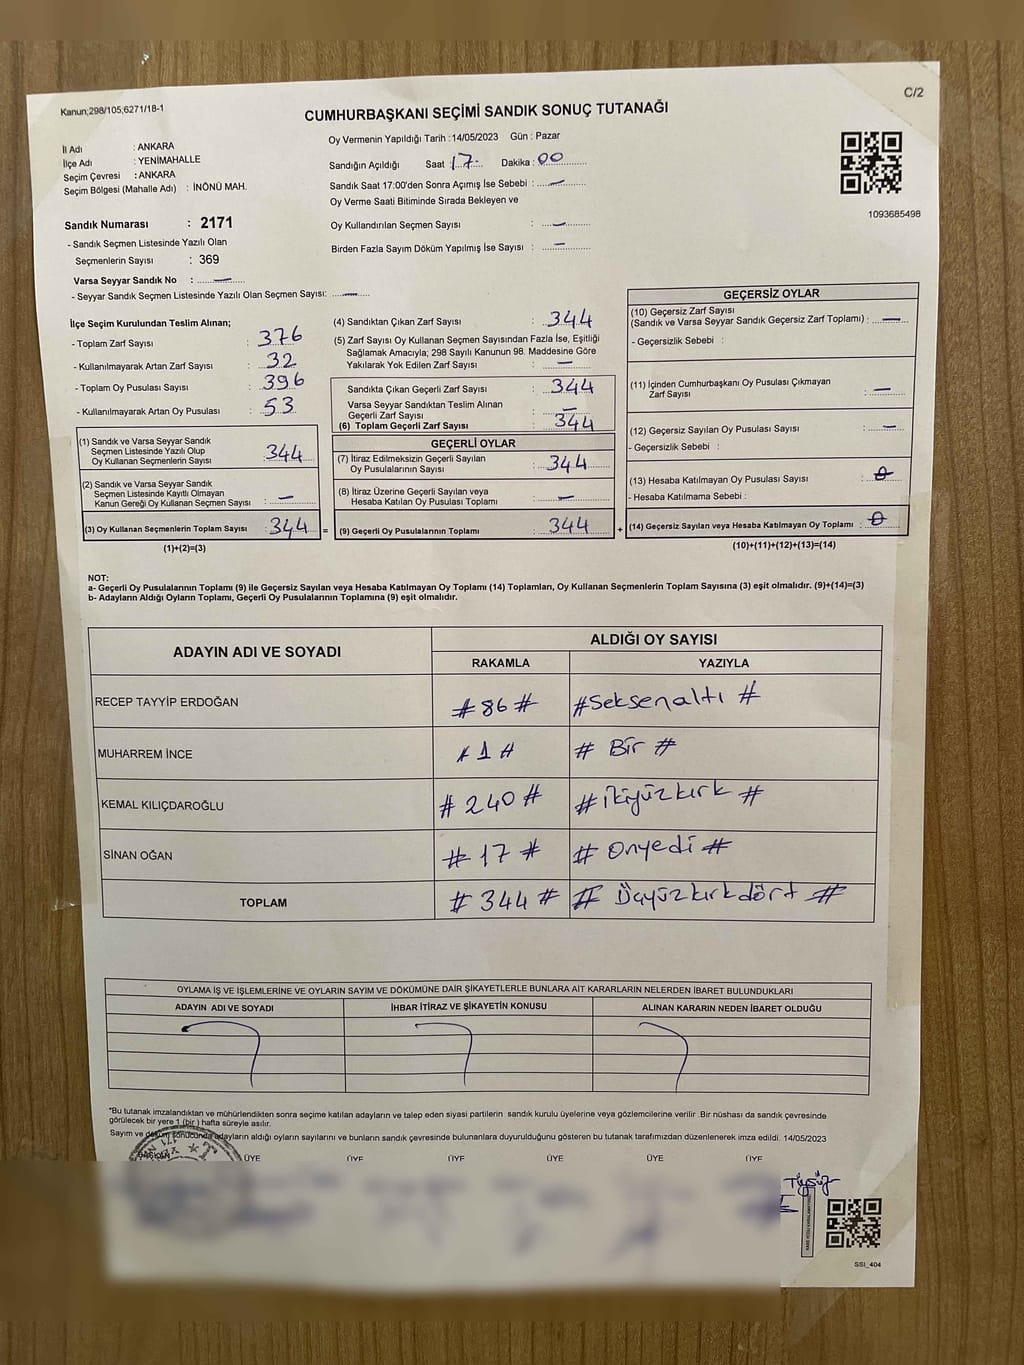 Kanun;298/105;6271/18-1
C/2
CUMHURBAŞKANI SEÇİMİ SANDIK SONUÇ TUTANAĞI
İl Adı : ANKARA
İlçe Adı : YENİMAHALLE
Seçim Çevresi : ANKARA
Seçim Bölgesi (Mahalle Adı) : İNÖNÜ MAH.
Sandık Numarası : 2171
- Sandık Seçmen Listesinde Yazılı Olan
Seçmenlerin Sayısı : 369
Varsa Seyyar Sandık No : —
- Seyyar Sandık Seçmen Listesinde Yazılı Olan Seçmen Sayısı: —
Oy Vermenin Yapıldığı Tarih :14/05/2023 Gün : Pazar
Sandığın Açıldığı Saat : 17 Dakika : 00
Sandık Saat 17:00'den Sonra Açımış İse Sebebi : —
Oy Verme Saati Bitiminde Sırada Bekleyen ve
Oy Kullandırılan Seçmen Sayısı : —
Birden Fazla Sayım Döküm Yapılmış İse Sayısı : —
1093685498
İlçe Seçim Kurulundan Teslim Alınan;
- Toplam Zarf Sayısı : 376
- Kullanılmayarak Artan Zarf Sayısı : 32
- Toplam Oy Pusulası Sayısı : 396
- Kullanılmayarak Artan Oy Pusulası : 53
(1) Sandık ve Varsa Seyyar Sandık
Seçmen Listesinde Yazılı Olup
Oy Kullanan Seçmenlerin Sayısı : 344
(2) Sandık ve Varsa Seyyar Sandık
Seçmen Listesinde Kayıtlı Olmayan
Kanun Gereği Oy Kullanan Seçmen Sayısı : —
(3) Oy Kullanan Seçmenlerin Toplam Sayısı : 344 =
(1)+(2)=(3)
(4) Sandıktan Çıkan Zarf Sayısı : 344
(5) Zarf Sayısı Oy Kullanan Seçmen Sayısından Fazla İse, Eşitliği
Sağlamak Amacıyla; 298 Sayılı Kanunun 98. Maddesine Göre
Yakılarak Yok Edilen Zarf Sayısı : —
Sandıkta Çıkan Geçerli Zarf Sayısı : 344
Varsa Seyyar Sandıktan Teslim Alınan
Geçerli Zarf Sayısı : —
(6) Toplam Geçerli Zarf Sayısı : 344
GEÇERLİ OYLAR
(7) İtiraz Edilmeksizin Geçerli Sayılan
Oy Pusulalarının Sayısı : 344
(8) İtiraz Üzerine Geçerli Sayılan veya
Hesaba Katılan Oy Pusulası Toplamı : —
(9) Geçerli Oy Pusulalarının Toplamı : 344 +
GEÇERSİZ OYLAR
(10) Geçersiz Zarf Sayısı
(Sandık ve Varsa Seyyar Sandık Geçersiz Zarf Toplamı) : —
- Geçersizlik Sebebi :
(11) İçinden Cumhurbaşkanı Oy Pusulası Çıkmayan
Zarf Sayısı : —
(12) Geçersiz Sayılan Oy Pusulası Sayısı : —
- Geçersizlik Sebebi :
(13) Hesaba Katılmayan Oy Pusulası Sayısı : 0
- Hesaba Katılmama Sebebi :
(14) Geçersiz Sayılan veya Hesaba Katılmayan Oy Toplamı : 0
(10)+(11)+(12)+(13)=(14)
NOT:
a- Geçerli Oy Pusulalarının Toplamı (9) ile Geçersiz Sayılan veya Hesaba Katılmayan Oy Toplamı (14) Toplamları, Oy Kullanan Seçmenlerin Toplam Sayısına (3) eşit olmalıdır. (9)+(14)=(3)
b- Adayların Aldığı Oyların Toplamı, Geçerli Oy Pusulalarının Toplamına (9) eşit olmalıdır.
ADAYIN ADI VE SOYADI
ALDIĞI OY SAYISI
RAKAMLA YAZIYLA
RECEP TAYYİP ERDOĞAN # 86 # #Seksenaltı #
MUHARREM İNCE # 1 # # Bir #
KEMAL KILIÇDAROĞLU # 240 # # İkiyüzkırk #
SİNAN OĞAN # 17 # # Onyedi #
TOPLAM # 344 # # Üçyüzkırkdört #
OYLAMA İŞ VE İŞLEMLERİNE VE OYLARIN SAYIM VE DÖKÜMÜNE DAİR ŞİKAYETLERLE BUNLARA AİT KARARLARIN NELERDEN İBARET BULUNDUKLARI
ADAYIN ADI VE SOYADI İHBAR İTİRAZ VE ŞİKAYETİN KONUSU ALINAN KARARIN NEDEN İBARET OLDUĞU
*Bu tutanak imzalandıktan ve mühürlendikten sonra seçime katılan adayların ve talep eden siyasi partilerin sandık kurulu üyelerine veya gözlemcilerine verilir .Bir nüshası da sandık çevresinde
görülecek bir yere 1 (bir ) hafta süreyle asılır.
Sayım ve döküm sonucunda adayların aldığı oyların sayılarını ve bunların sandık çevresinde bulunanlara duyurulduğunu gösteren bu tutanak tarafımızdan düzenlenerek imza edildi. 14/05/2023
BAŞKAN ÜYE ÜYE ÜYE ÜYE ÜYE ÜYE
SSI_404